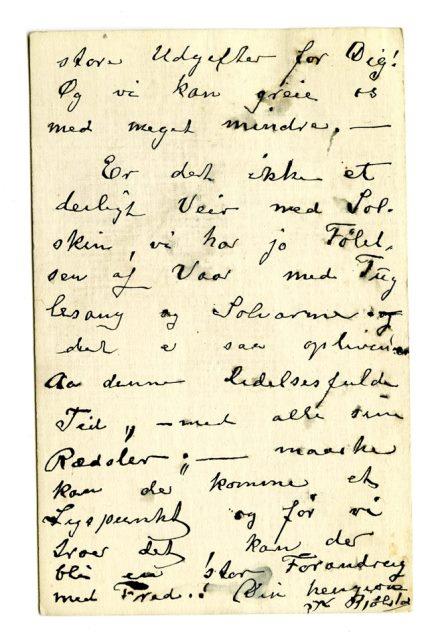 store Udgifter for Dig!
Og vi kan greie os
med meget mindre. —
Er det ikke et
deiligt Veir med Sol-
skin, vi har jo Følel-
sen af Vaar med Fug
lesang og Solvarme og
det e saa oplivende
Aa denne lidelsesfulde
Tid „ — med alle sine
Rædsler „ — maaske
kan der komme et
Lyspunkt og før vi
troer det, kan der
bli en stor Forandring
med Fred.! Din hengivne